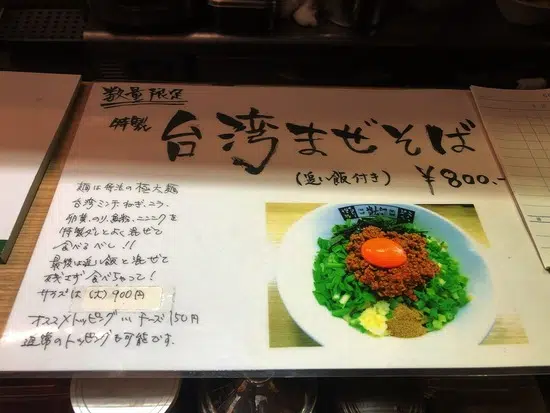 数量限定
特製 台湾まぜそば
(追い飯付き) ¥800.-
麺は店法の極太麺
台湾ミンチ ねぎ、ニラ、
卵黄、のり、魚粉、ニンニクを
特製ダレとよく混ぜて
食べるべし!!
最後は追い飯と混ぜて
残さず食べちゃって!
サイズは (大) 900円
オススメトッピング… チーズ150円
通常のトッピングも可能です。